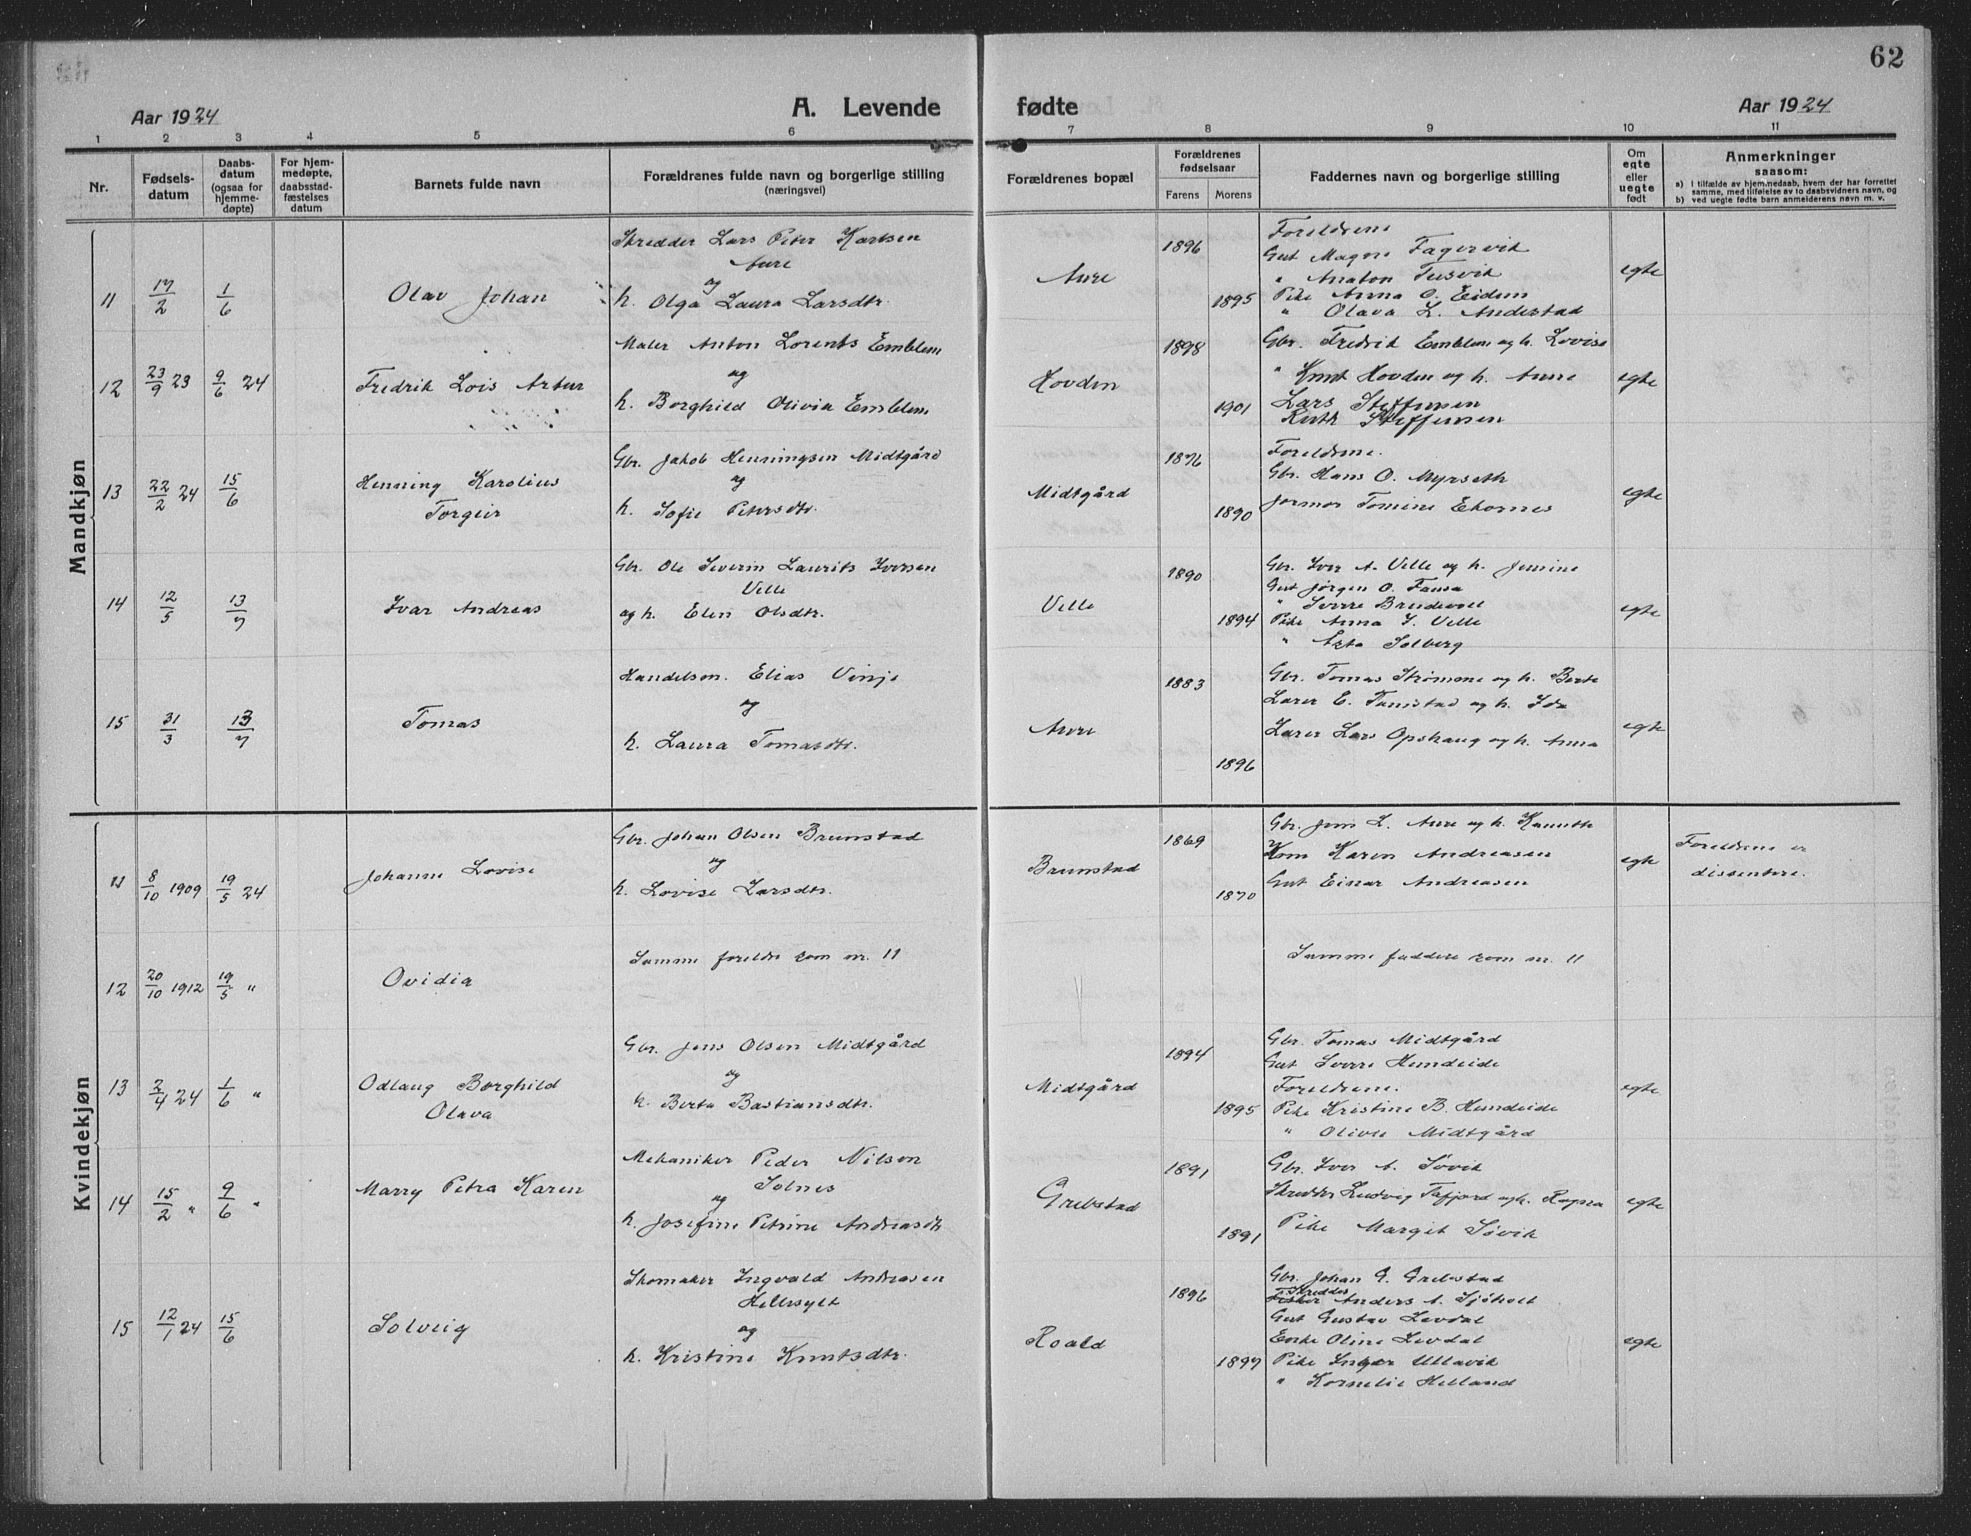 62
Aar 1924
A. Levende fødte
Aar 1924
1 2 3 4 5 6 7 8 9 10 11
Nr.
Fødsels-
datum
Daabs-
datum
(ogsaa for
hjemme-
døpte)
For hjem-
medøpte,
daabsstad-
fæstelses
datum
Barnets fulde navn
Forældrenes fulde navn og borgerlige stilling
(næringsvei)
Forældrenes bopæl
Forældrenes
fødselsaar
Farens Morens
Faddernes navn og borgerlige stilling
Om
egte
eller
uegte
født
Anmerkninger
saasom:
a) i tilfælde av hjemmedaab, hvem der har forrettet
samme, med tilføielse av to daabsvidners navn, og
b) ved uegte fødte barn anmelderens navn m. v.
Mandkjøn
11 17/2 1/6
Olav Johan
Skredder Lars Peter Karlsen
Aure
og
h. Olga Laura Larsdtr.
Aure
1896
1895
Foreldrene
Gut Magne Fagervik
" Anaton Tusvik
Pike Anna O. Eidem
" Olava L. Andestad
egte
12 23/9 23 9/6 24
Fredrik Lois Artur
Maler Anton Lorents Emblem
og
h. Borghild Olivia Emblem
Hovden
1898
1901
Gbr. Fredrik Emblem og h. Lovise
" Knut Hovden og h. Anne
Lars Steffensen
Ruth Steffensen
egte
13 22/2 24 15/6
Henning Karolius
Torgeir
Gbr. Jakob Henningsen Midtgård
og
h. Sofie Petersdtr.
Midtgård
1896
1890
Foreldrene.
Gbr. Hans O. Myrseth
Jormor Tomine Ekornes
egte
14 12/5 13/7
Ivar Andreas
Gbr. Ole Severin Laurits Iversen
Velle
og h. Elen Olsdtr.
Velle
1890
1894
Gbr. Iver A. Velle og h. Jemine
Gut Jørgen O. Fausa
" Sverre Brudevoll
Pike Anna I. Velle
" Asta Solberg
egte
15 31/3 13/7
Tomas
Handelsm. Elias Vinje
og
h. Laura Tomasdtr.
Aure
1883
1896
Gbr. Tomas Strømme og h. Berte
Lærer E. Tunstad og h. Ida
Lærer Lars Opshaug og h. Anna
egte
Kvindekjøn
11 8/10 1909 19/5 24
Johanne Lovise
Gbr. Johan Olsen Brunstad
og
h. Lovise Larsdtr.
Brunstad
1869
1870
Gbr. Jens L. Aure og h. Kanutte
Kom Karen Andreasen
Gut Einar Andreasen
egte
Foreldrene er
dissentere.
12 20/10 1912 19/5 "
Ovidia
Samme foreldre som nr. 11
Samme faddere som nr. 11
13 2/4 24 1/6 "
Odlaug Borghild
Olava
Gbr. Jens Olsen Midtgård
og
h. Berta Bastiansdtr.
Midtgård
1894
1895
Gbr. Tomas Midtgård
Gut Sverre Hundeide
Foreldrene.
Pike Kristine B. Hundeide
" Olivie Midtgård
egte
14 15/2 " 9/6 "
Marry Petra Karen
Mekaniker Peder Nilsen
Solnes
og
h. Josefine Petrine Andreasdtr
Grebstad
1891
1891
Gbr. Iver A. Søvik
Skredder Ludvig Tafjord og h. Ragna
Pike Margit Søvik
egte
15 12/1 24 15/6
Solveig
Skomaker Ingvald Andreasen
Hellesylt
og
h. Kristine Knutsdtr.
Roald
1896
1897
Gbr. Johan G. Grebstad
Skredder
Fisker Anders A. Sjøholt
Gut Gustav Levdal
Enke Oline Levdal
Pike Inger Ullavik
" Kornelie Helland
egte